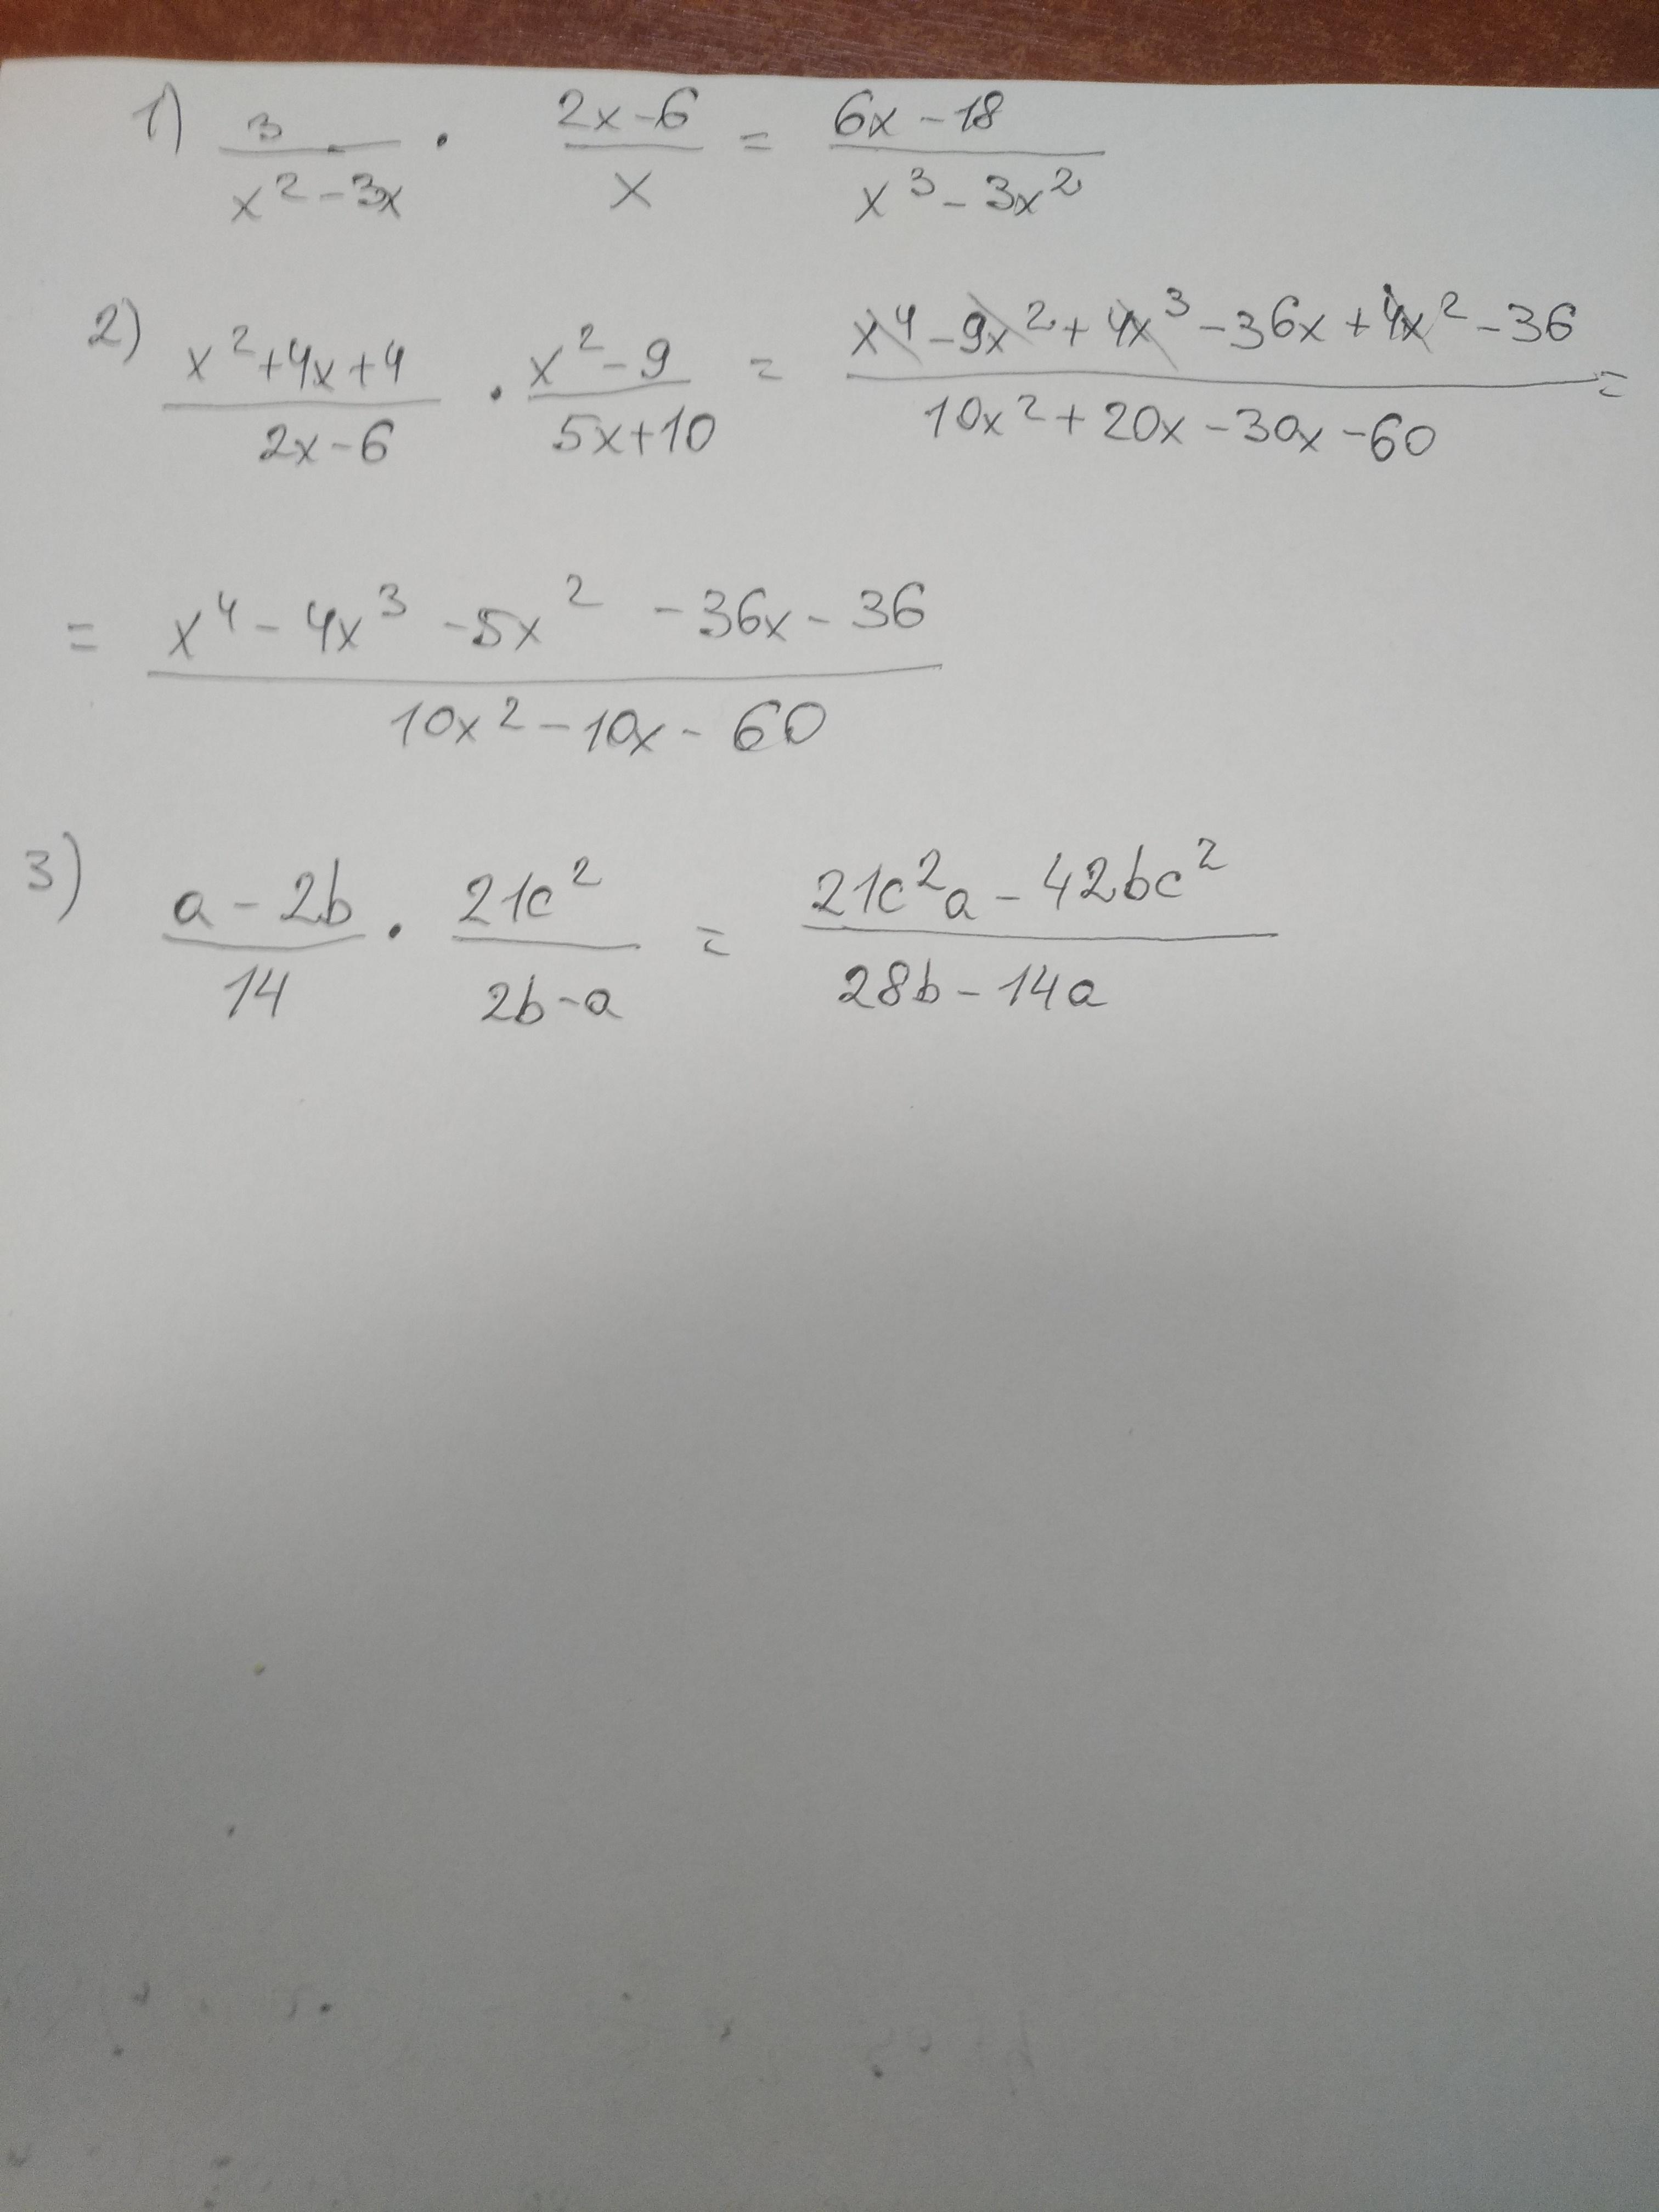 1) 3/(x² - 3x) · (2x - 6)/x = (6x - 18)/(x³ - 3x²)
2) (x² + 4x + 4)/(2x - 6) · (x² - 9)/(5x + 10) = (x⁴ - 9x² + 4x³ - 36x + 4x² - 36)/(10x² + 20x - 30x - 60) =
= (x⁴ - 4x³ - 5x² - 36x - 36)/(10x² - 10x - 60)
3) (a - 2b)/14 · 21c²/(2b - a) = (21c²a - 42bc²)/(28b - 14a)